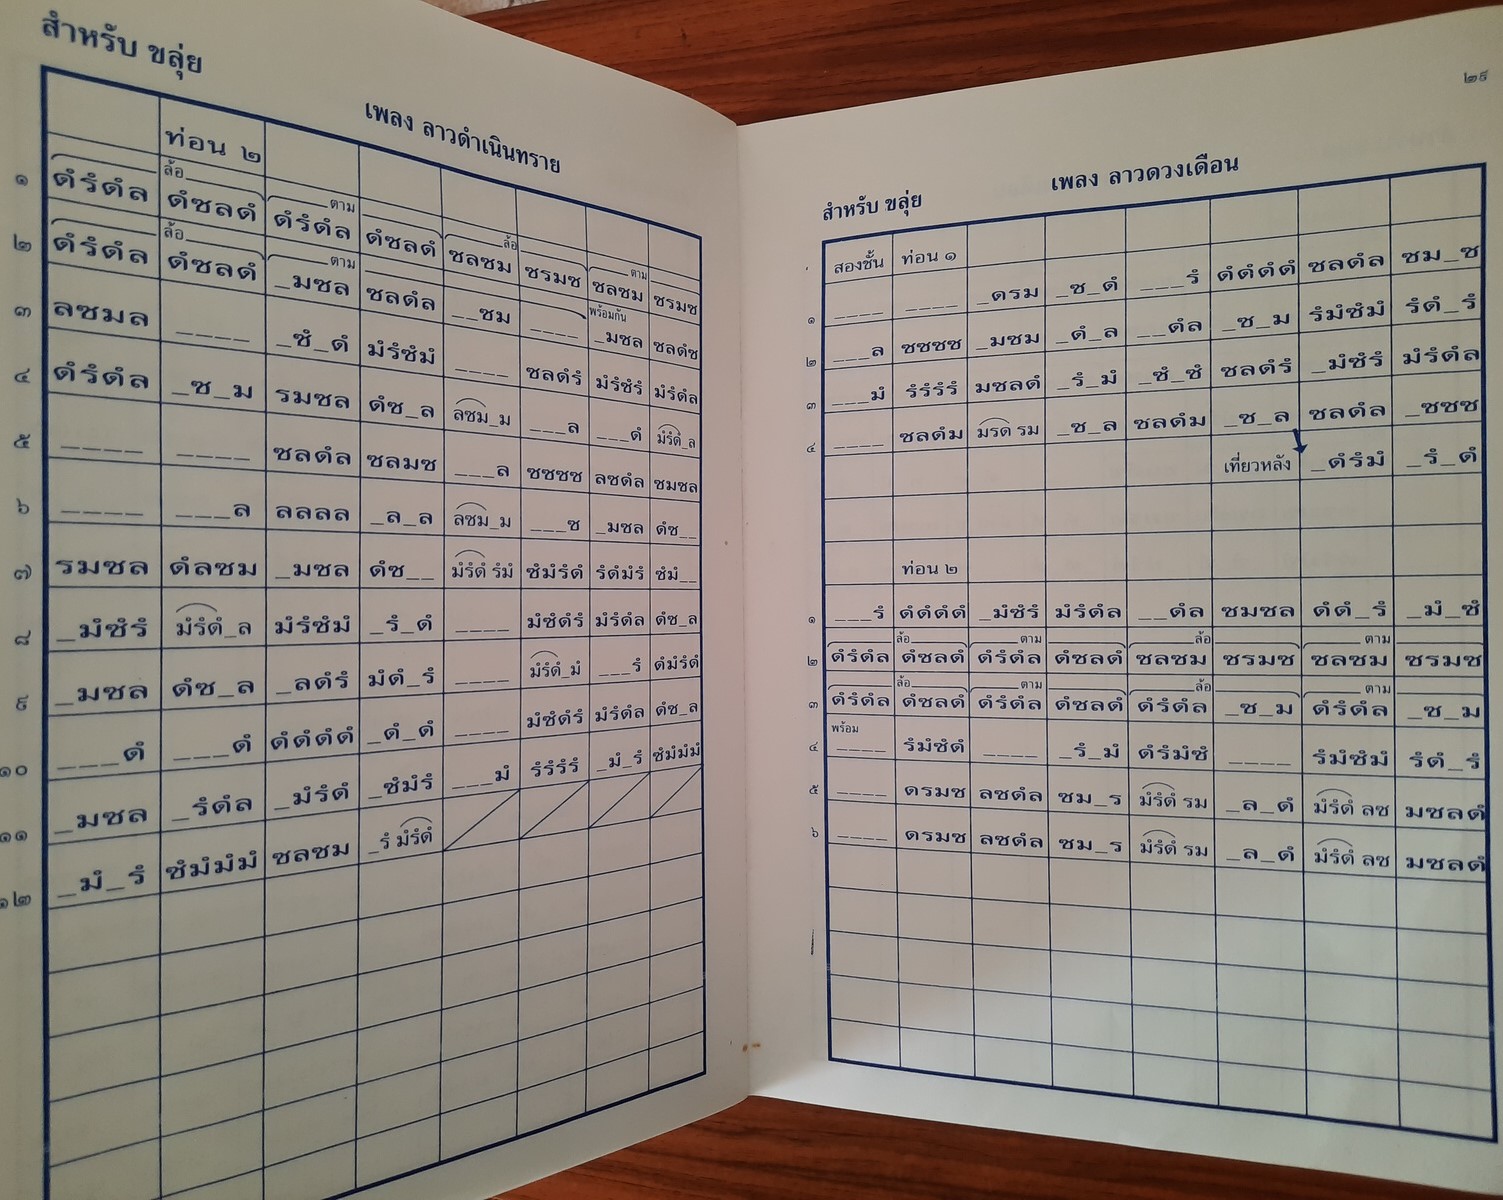 สำหรับ ขลุ่ย
เพลง ลาวดำเนินทราย
ท่อน ๒
ล้อ ตาม ล้อ ตาม
๑ ดํรํดํล ดํซลดํ ดํรํดํล ดํซลดํ ซลซม ซรมซ ซลซม ซรมซ
ล้อ ตาม พร้อมกัน
๒ ดํรํดํล ดํซลดํ _มซล ซลดํล __ซม ____ _มซล ซลดํซ
๓ ลซมล ____ _ซํ_ดํ มํรํซํมํ ____ ซลดํรํ มํรํซํรํ มํรํดํล
๔ ดํรํดํล _ซ_ม รมซล ดํซ_ล ลซม_ม ___ล ___ดํ มํรํดํ_ล
๕ ____ ____ ซลดํล ซลมซ ___ล ซซซซ ลซดํล ซมซล
๖ ____ ___ล ลลลล _ล_ล ลซม_ม ___ซ _มซล ดํซ__
๗ รมซล ดํลซม _มซล ดํซ__ มํรํดํ รํมํ ซํมํรํดํ รํดํมํรํ ซํมํ__
๘ _มํซํรํ มํรํดํ_ล มํรํซํมํ _รํ_ดํ ____ มํซํดํรํ มํรํดํล ดํซ_ล
๙ _มซล ดํซ_ล _ลดํรํ มํดํ_รํ ____ มํรํดํ_มํ ___รํ ดํมํรํดํ
๑๐ ___ดํ ___ดํ ดํดํดํดํ _ดํ_ดํ ____ มํซํดํรํ มํรํดํล ดํซ_ล
๑๑ _มซล _รํดํล _มํรํดํ _ซํมํรํ ___มํ รํรํรํรํ _มํ_รํ ซํมํมํมํ
๑๒ _มํ_รํ ซํมํมํมํ ซลซม _รํ มํรํดํ
๒๙
สำหรับ ขลุ่ย
เพลง ลาวดวงเดือน
สองชั้น ท่อน ๑
๑ ____ ____ _ดรม _ซ_ดํ ___รํ ดํดํดํดํ ซลดํล ซม_ซ
๒ ___ล ซซซซ _มซม _ดํ_ล __ดํล _ซ_ม รํมํซํมํ รํดํ_รํ
๓ ___มํ รํรํรํรํ มซลดํ _รํ_มํ _ซํ_ซํ ซลดํรํ _มํซํรํ มํรํดํล
๔ ____ ซลดํม มรดํ รม _ซ_ล ซลดํม _ซ_ล ซลดํล _ซซซ
เที่ยวหลัง _ดํรํมํ _รํ_ดํ
ท่อน ๒
๑ ___รํ ดํดํดํดํ _มํซํรํ มํรํดํล __ดํล ซมซล ดํดํ_รํ _มํ_ซํ
ล้อ ตาม ล้อ ตาม
๒ ดํรํดํล ดํซลดํ ดํรํดํล ดํซลดํ ซลซม ซรมซ ซลซม ซรมซ
ล้อ ตาม ล้อ ตาม
๓ ดํรํดํล ดํซลดํ ดํรํดํล ดํซลดํ ดํรํดํล _ซ_ม ดํรํดํล _ซ_ม
พร้อม
๔ ____ รํมํซํดํ ____ _รํ_มํ ดํรํมํซํ ____ รํมํซํมํ รํดํ_รํ
๕ ____ ดรมซ ลซดํล ซม_ร มํรํดํ รม _ล_ดํ มํรํดํ ลซ มซลดํ
๖ ____ ดรมซ ลซดํล ซม_ร มํรํดํ รม _ล_ดํ มํรํดํ ลซ มซลดํ